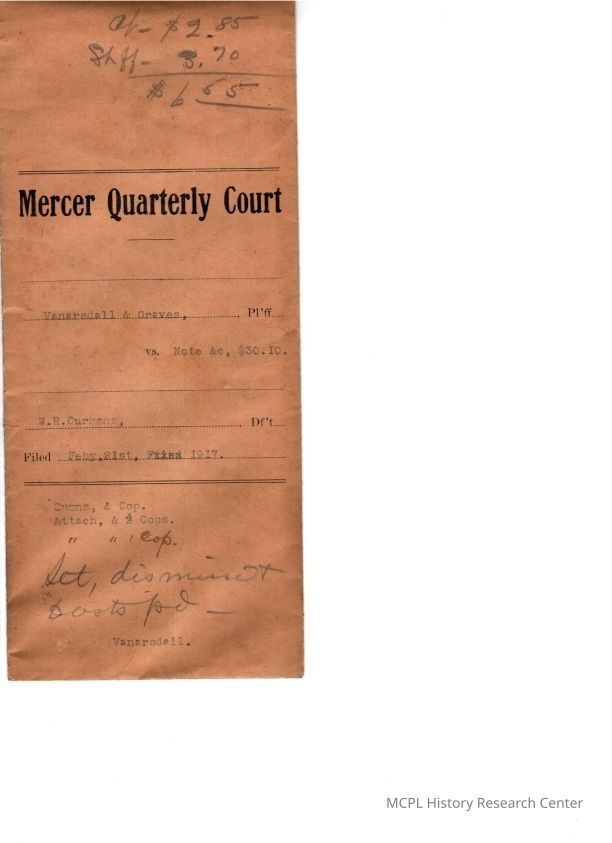 Clk - $2.85
Shff - 3.70
$6.55
Mercer Quarterly Court
Vanarsdall & Graves, Pl'ff
vs. Note &c, $30.10.
W.R.Currens, Df't
Filed Feby,21st, 1917.
Sumns, & Cop.
Attach, & 2 Cops.
" " 1 Cop.
Set, dismissed
costs pd -
Vanarsdall.
MCPL History Research Center